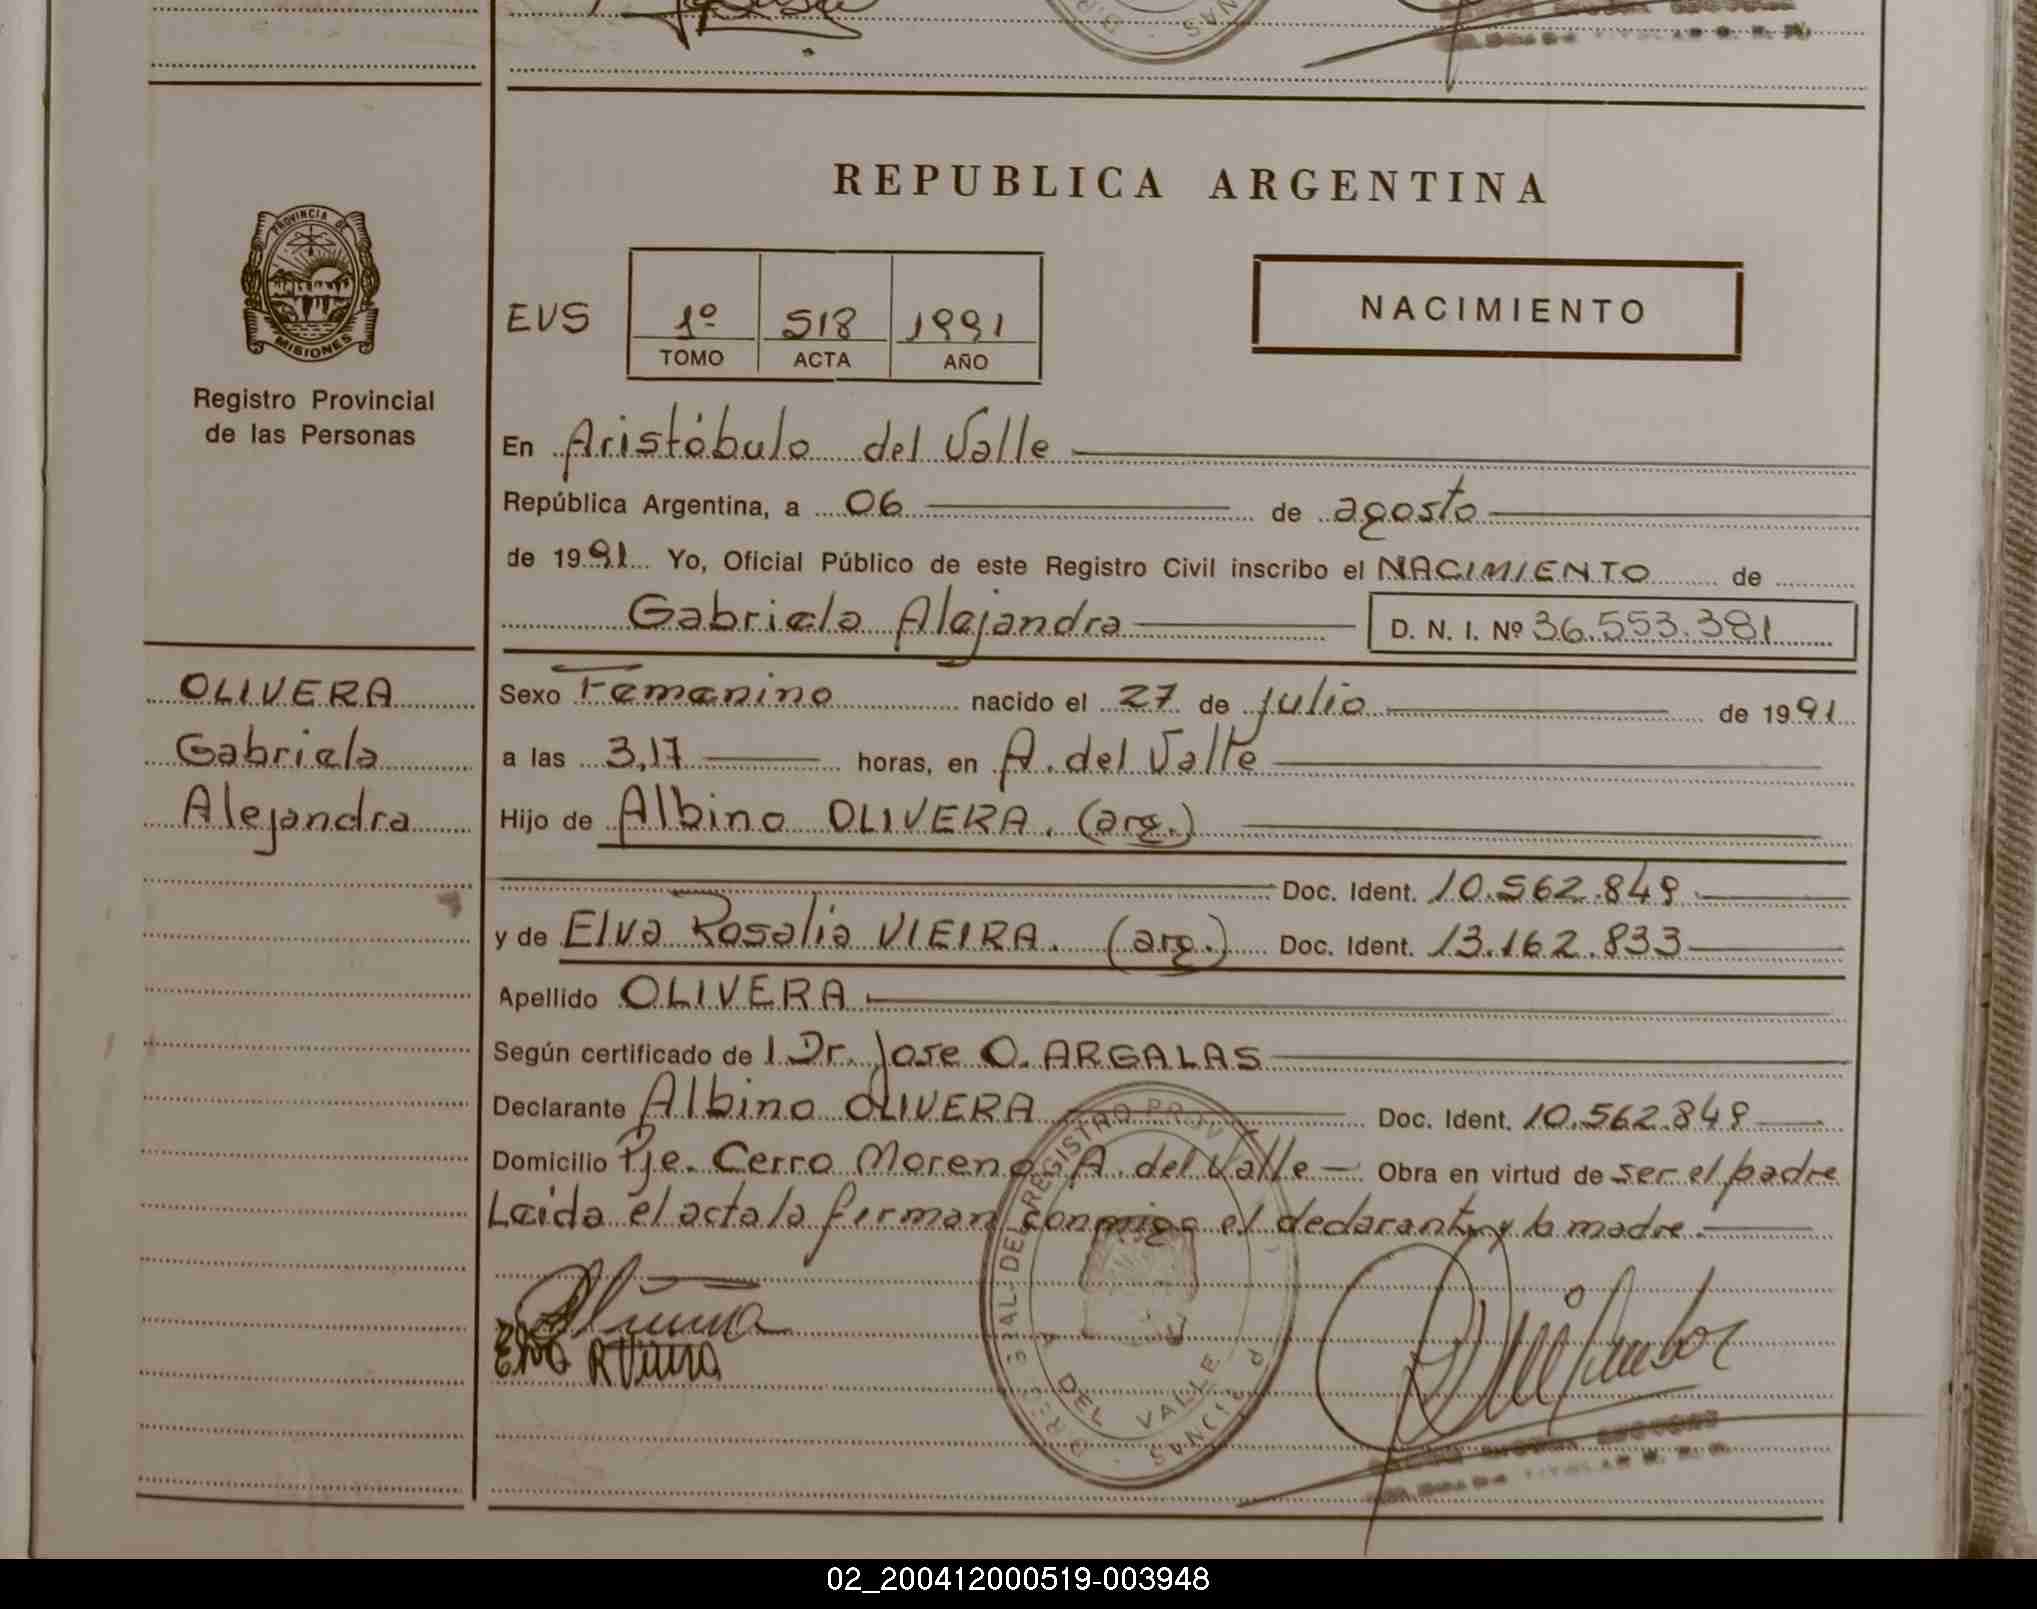 REPUBLICA ARGENTINA
PROVINCIA DE MISIONES
Registro Provincial
de las Personas
EVS 1º 518 1991
TOMO ACTA AÑO
NACIMIENTO
En Aristóbulo del Valle
República Argentina, a 06 de agosto
de 1991 Yo, Oficial Público de este Registro Civil inscribo el NACIMIENTO de
Gabriela Alejandra D. N. I. Nº 36.553.381
OLIVERA
Gabriela
Alejandra
Sexo Femenino nacido el 27 de julio de 1991
a las 3,17 horas, en A. del Valle
Hijo de Albino OLIVERA. (arg.)
Doc. Ident. 10.562.849
y de Elva Rosalia VIEIRA. (arg.) Doc. Ident. 13.162.833
Apellido OLIVERA
Según certificado de l Dr. Jose O. ARGALAS
Declarante Albino OLIVERA Doc. Ident. 10.562.849
Domicilio Pje. Cerro Moreno A. del Valle Obra en virtud de ser el padre
Leida el acta la firman conmigo el declarante y la madre.
DEL VALLE
02_200412000519-003948